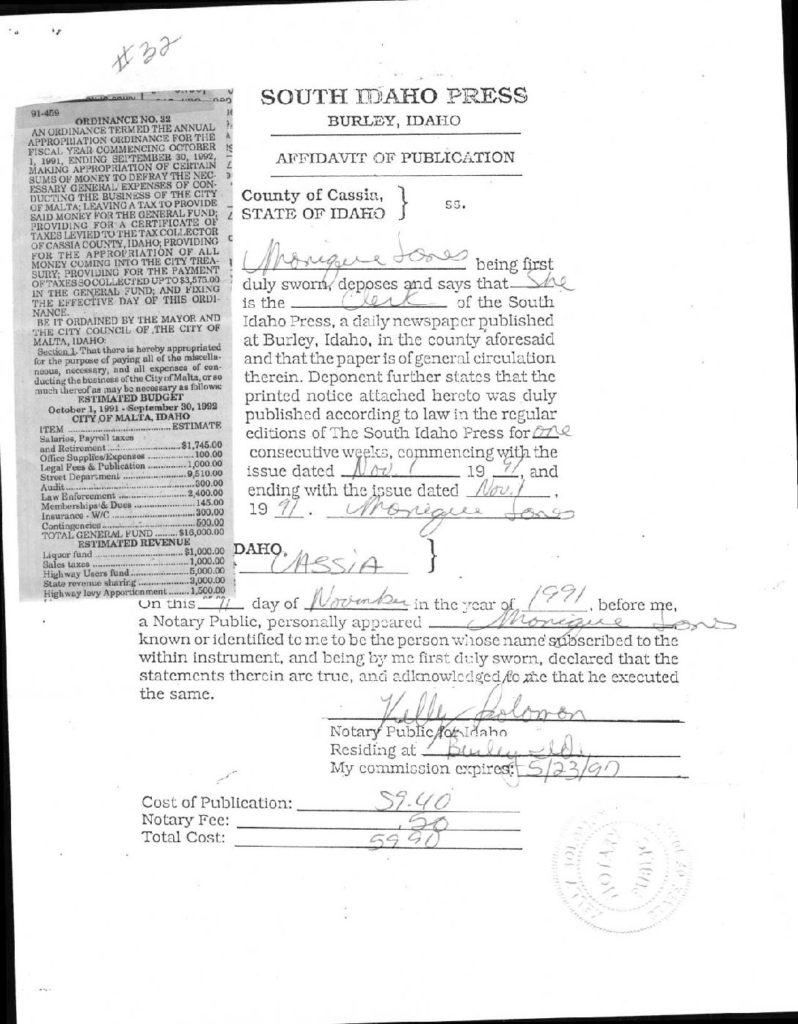 #32
91-459
ORDINANCE NO. 32
AN ORDINANCE TERMED THE ANNUAL
APPROPRIATION ORDINANCE FOR THE
FISCAL YEAR COMMENCING OCTOBER
1, 1991, ENDING SEPTEMBER 30, 1992,
MAKING APPROPRIATION OF CERTAIN
SUMS OF MONEY TO DEFRAY THE NEC-
ESSARY GENERAL EXPENSES OF CON-
DUCTING THE BUSINESS OF THE CITY
OF MALTA; LEAVING A TAX TO PROVIDE
SAID MONEY FOR THE GENERAL FUND;
PROVIDING FOR A CERTIFICATE OF
TAXES LEVIED TO THE TAX COLLECTOR
OF CASSIA COUNTY, IDAHO; PROVIDING
FOR THE APPROPRIATION OF ALL
MONEY COMING INTO THE CITY TREA-
SURY; PROVIDING FOR THE PAYMENT
OF TAXES SO COLLECTED UP TO $3,575.00
IN THE GENERAL FUND; AND FIXING
THE EFFECTIVE DAY OF THIS ORDI-
NANCE.
BE IT ORDAINED BY THE MAYOR AND
THE CITY COUNCIL OF THE CITY OF
MALTA, IDAHO:
Section 1. That there is hereby appropriated
for the purpose of paying all of the miscella-
neous, necessary, and all expenses of con-
ducting the business of the City of Malta, or so
much thereof as may be necessary as follows:
ESTIMATED BUDGET
October 1, 1991 - September 30, 1992
CITY OF MALTA, IDAHO
ITEM ........ ESTIMATE
Salaries, Payroll taxes
and Retirement ........ $1,745.00
Office Supplies/Expenses ........ 100.00
Legal Fees & Publication ........ 1,000.00
Street Department ........ 9,510.00
Audit ........ 300.00
Law Enforcement ........ 2,400.00
Memberships & Dues ........ 145.00
Insurance - W/C ........ 300.00
Contingencies ........ 500.00
TOTAL GENERAL FUND ........ $16,000.00
ESTIMATED REVENUE
Liquor fund ........ $1,000.00
Sales taxes ........ 1,000.00
Highway Users fund ........ 5,000.00
State revenue sharing ........ 3,000.00
Highway levy Apportionment ........ 1,500.00
SOUTH IDAHO PRESS
BURLEY, IDAHO
AFFIDAVIT OF PUBLICATION
County of Cassia, }
STATE OF IDAHO ss.
Monique Jones being first
duly sworn, deposes and says that she
is the Clerk of the South
Idaho Press, a daily newspaper published
at Burley, Idaho, in the county aforesaid
and that the paper is of general circulation
therein. Deponent further states that the
printed notice attached hereto was duly
published according to law in the regular
editions of The South Idaho Press for one
consecutive weeks, commencing with the
issue dated Nov. 1 19 91, and
ending with the issue dated Nov. 1,
19 91. Monique Jones
DAHO, }
CASSIA
On this 11 day of November in the year of 1991, before me,
a Notary Public, personally appeared Monique Jones
known or identified to me to be the person whose name subscribed to the
within instrument, and being by me first duly sworn, declared that the
statements therein are true, and adknowledged to me that he executed
the same.
Kelly Solomon
Notary Public for Idaho
Residing at Burley ID.
My commission expires: 5/23/97
Cost of Publication: 59.40
Notary Fee: .50
Total Cost: 59.90
NOTARY
PUBLIC